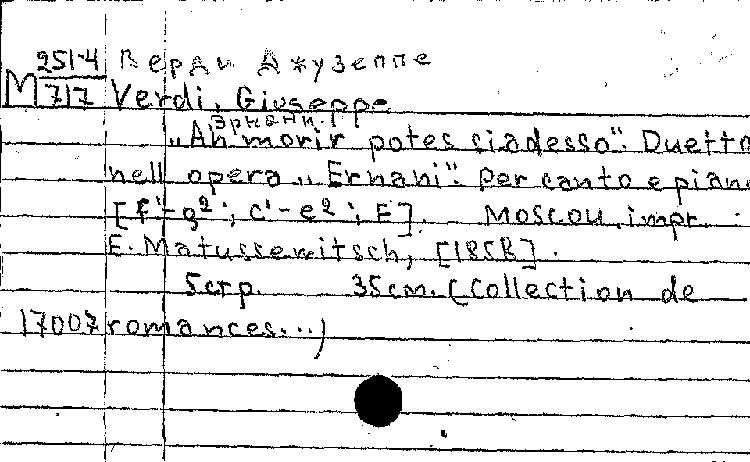 251-4 Верди Джузеппе
М 717 Verdi, Giuseppe
Эрнани.
„Ah morir potessiadesso". Duetto
nell opera „Ernani". per canto e piano
[f¹-g²; c¹-e²; E]. Moscou, impr.
E. Matussewitsch, [1858].
5стр. 35cm. (Collection de
17007 romances...)